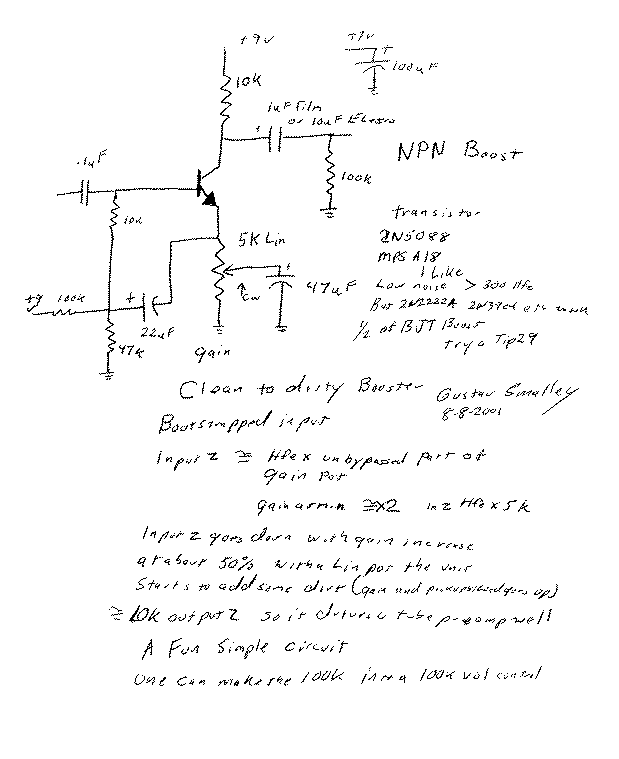 +9v
+9v
+
100uF
10K
1uF Film
or 10uF Electro
+
NPN Boost
.1uF
100k
10k
transistor
2N5088
MPSA18
I Like
Low noise > 300 Hfe
But 2N2222A 2N3904 etc work
1/2 of BJT Boost
try a Tip29
5K Lin
+
47uF
cw
+9 100k
+
22uF
47k
gain
Clean to dirty Booster
Gustav Smalley
8-8-2001
Bootstrapped input
Input Z ≅ Hfe x unbypassed part of
gain pot
gain at min ≅ x2 in Z Hfe x 5k
Input Z goes down with gain increase
at about 50% with a Lin pot the unit
Starts to add some dirt (gain and pickup used goes up)
≅ 10K output Z so it drives a tube preamp well
A Fun Simple circuit
One can make the 100K into a 100k vol control